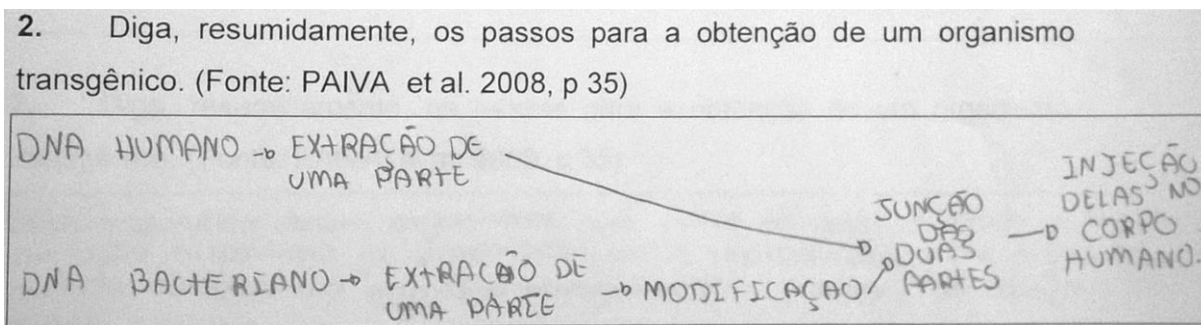 2. Diga, resumidamente, os passos para a obtenção de um organismo
transgênico. (Fonte: PAIVA et al. 2008, p 35)
DNA HUMANO → EXTRAÇÃO DE
UMA PARTE
DNA BACTERIANO → EXTRAÇÃO DE
UMA PARTE
→ MODIFICAÇAO
JUNÇÃO
DAO
DUAS
PARTES
→
INJEÇÃO
DELAS NO
CORPO
HUMANO.